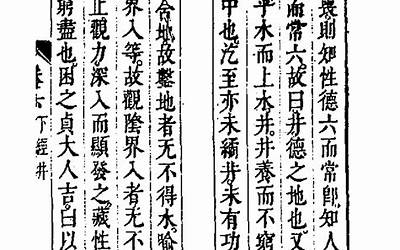 喪則知性德六而常卽知人
而常六故曰井德之地也又
乎水而上水井井養而不窮
中也汔至亦未繘井未有功
含地故鑿地者无不得水喻
界入等故觀陰界入者无不
止觀力深入而顯發之藏性
窮盡也困之貞大人吉曰以
卷六下經井